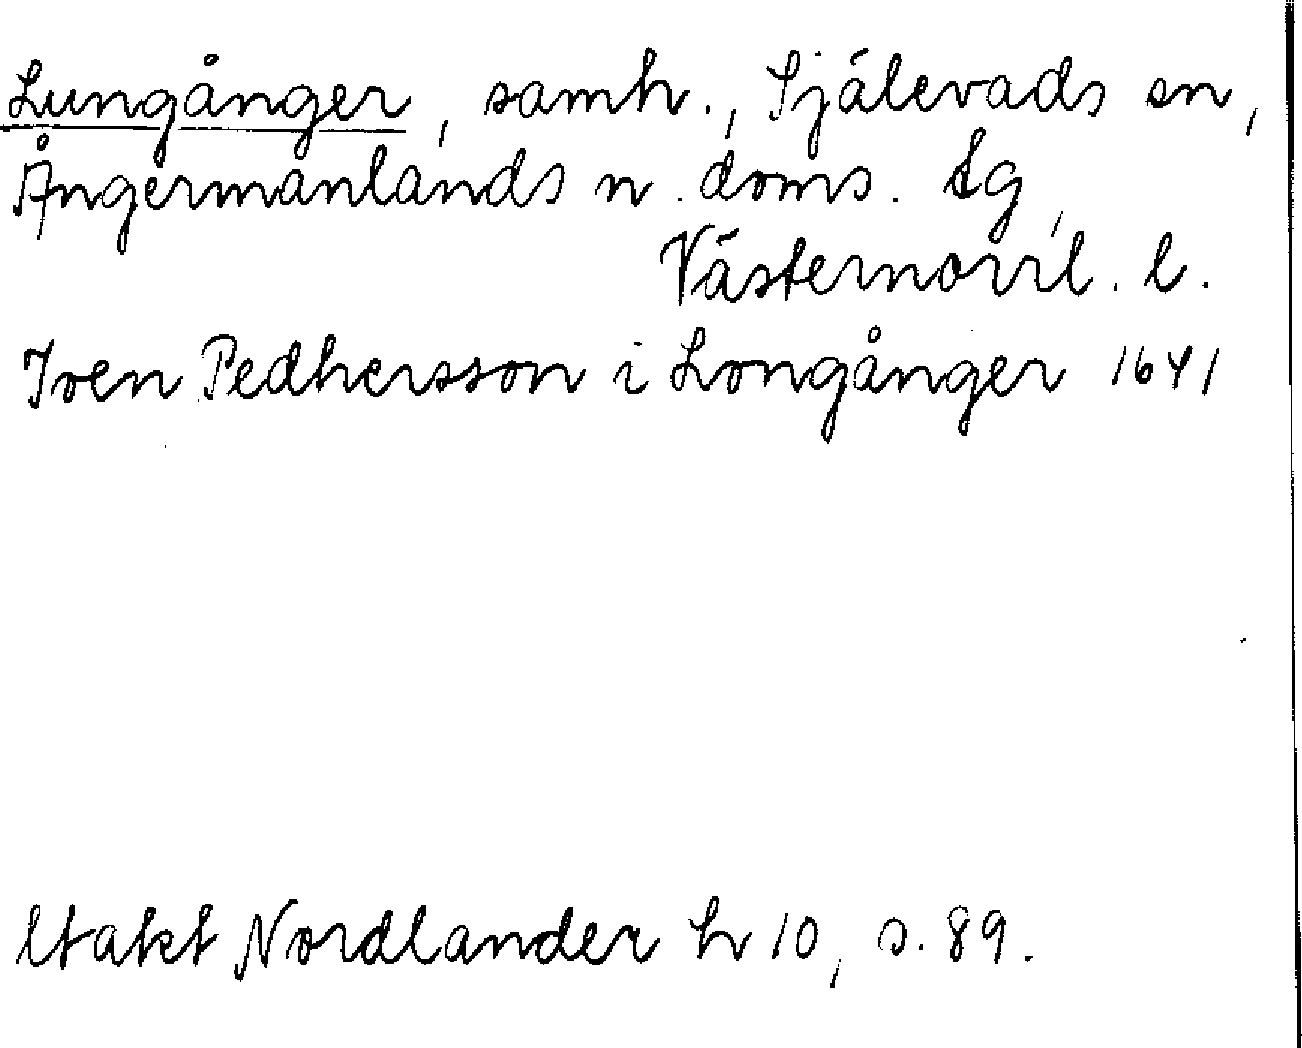 Lungånger, samh., Själevads sn,
Ångermanlands n. doms. tg,
Västernorrl. l.
Iven Pedhersson i Longånger 1641
Utakt Nordlander h 10, s. 89.